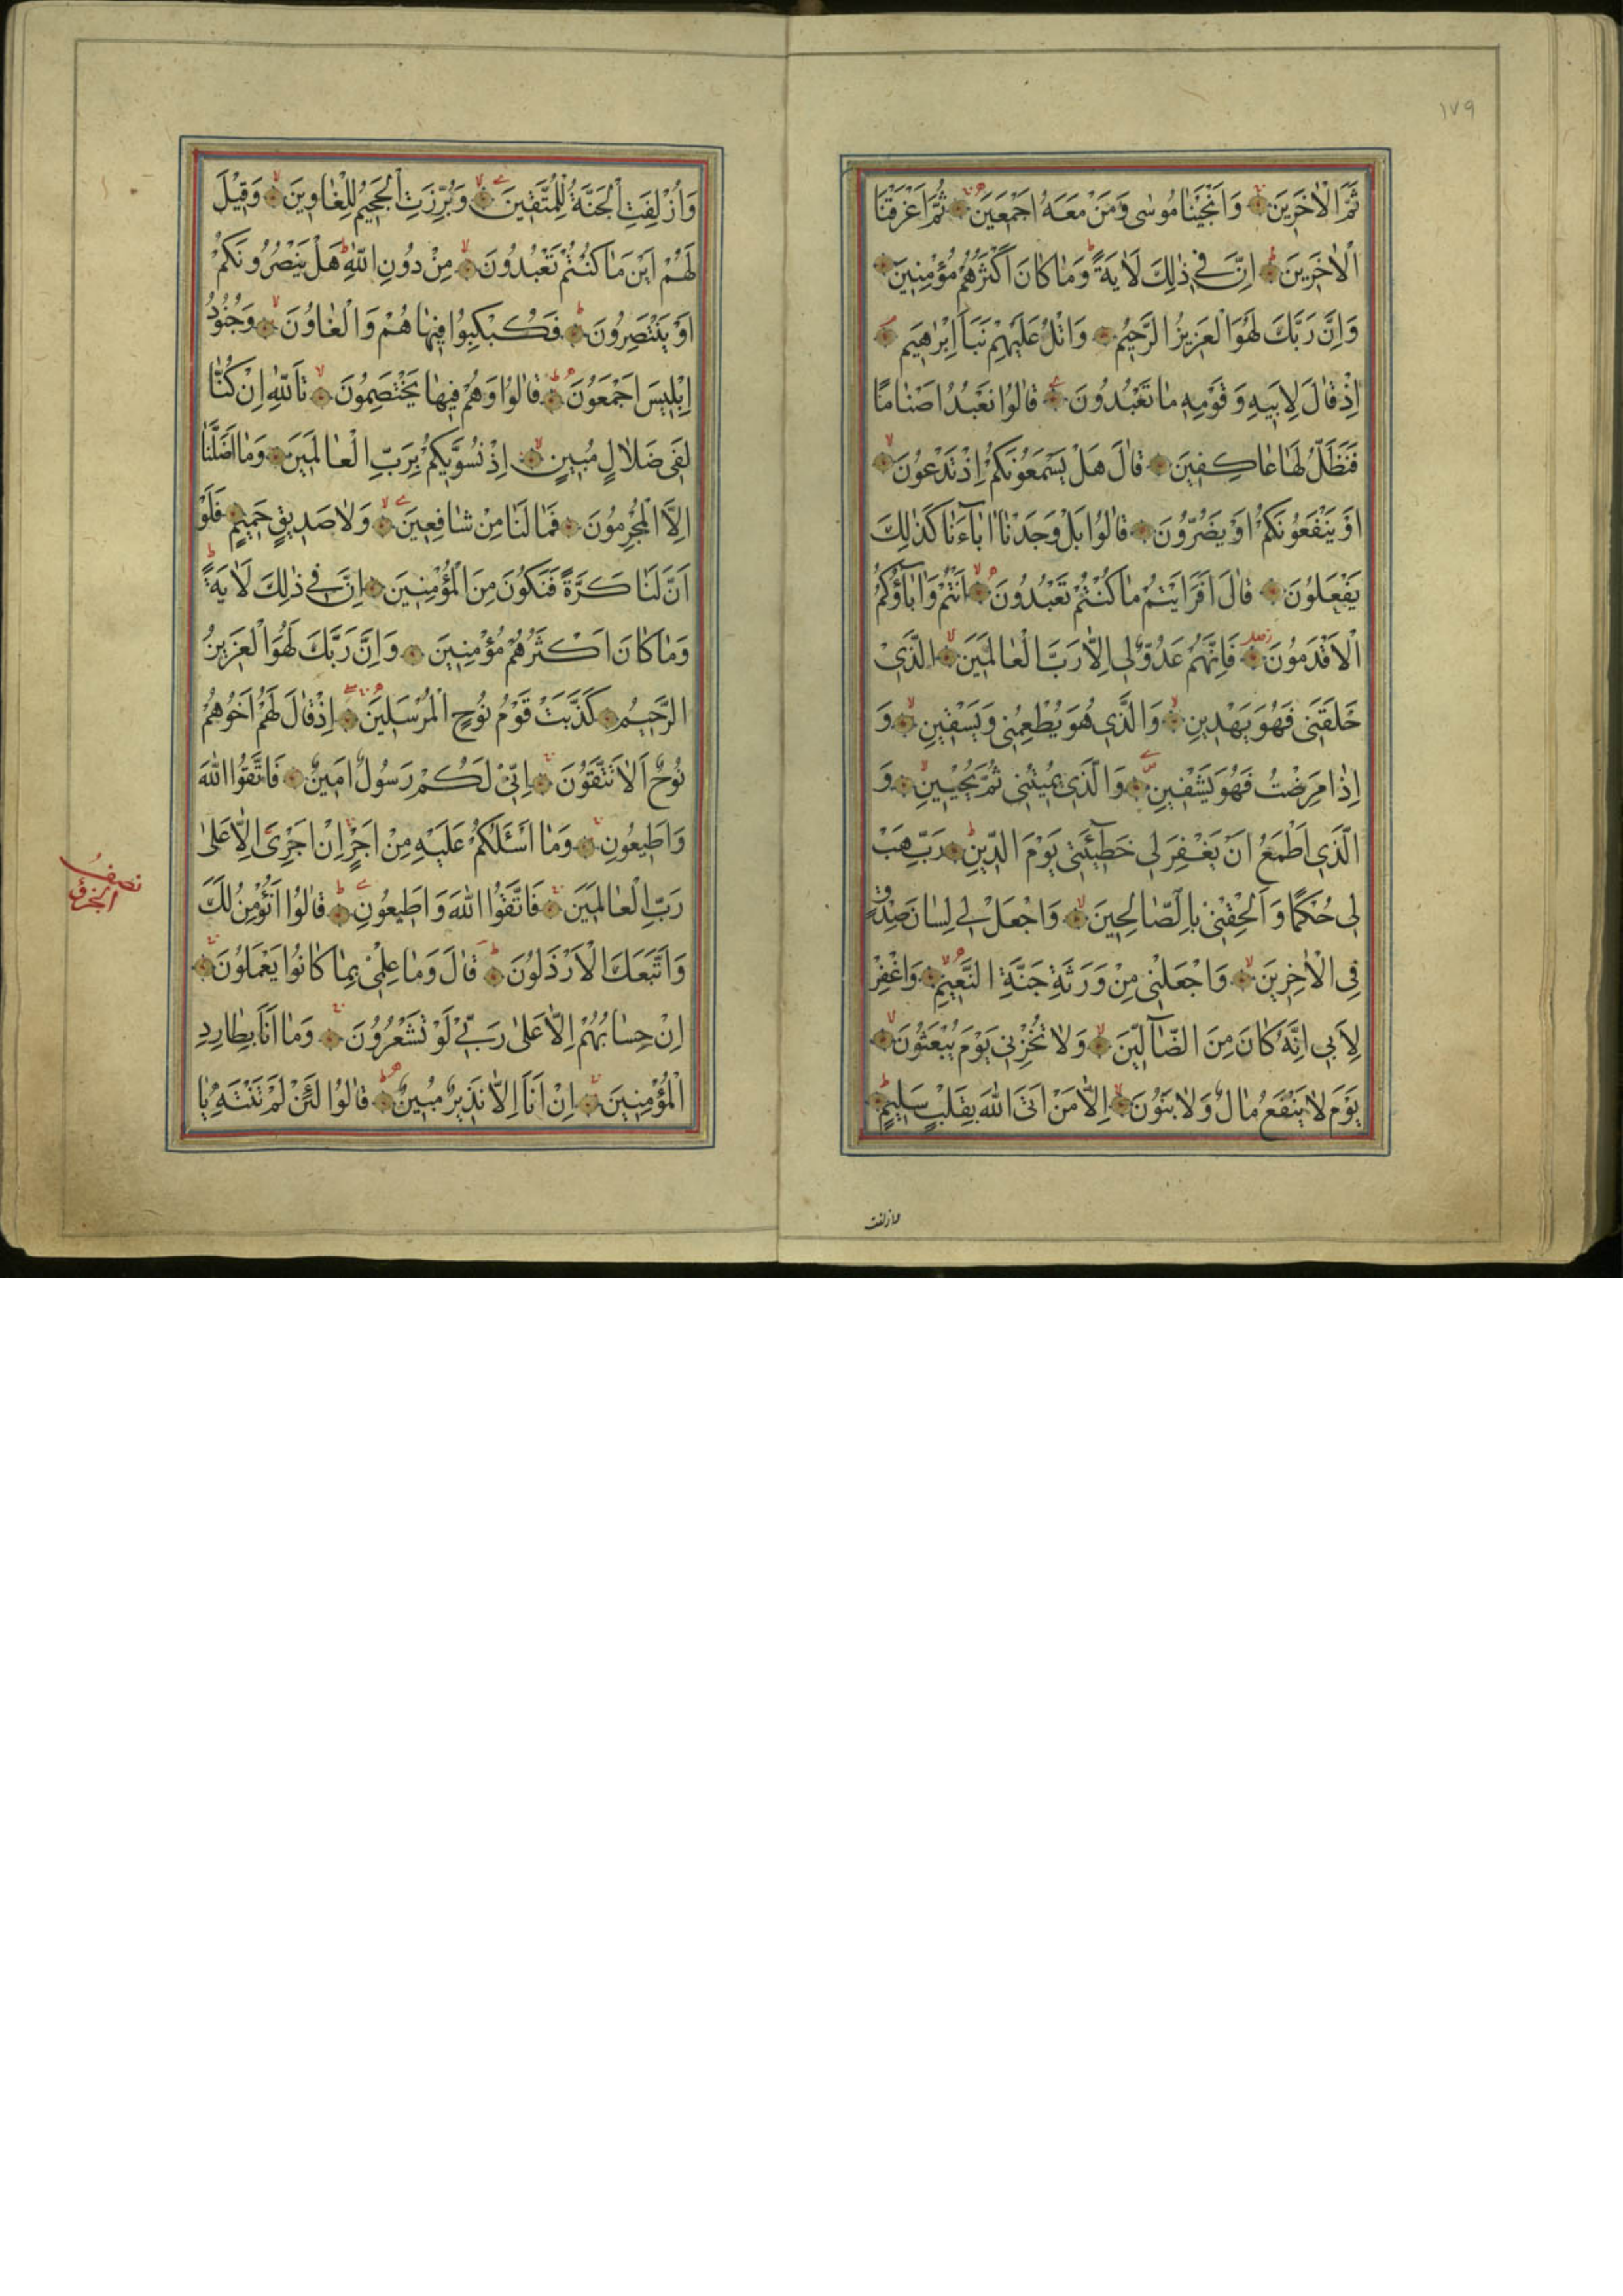 ١٧٩
ثَمَّ الْاٰخَرِينَ وَاَنْجَيْنَا مُوسٰى وَمَنْ مَعَهُ اَجْمَعِينَ ثُمَّ اَغْرَقْنَا
الْاٰخَرِينَ اِنَّ فِي ذٰلِكَ لَاٰيَةً وَمَا كَانَ اَكْثَرُهُمْ مُؤْمِنِينَ
وَاِنَّ رَبَّكَ لَهُوَ الْعَزِيزُ الرَّحِيمُ وَاتْلُ عَلَيْهِمْ نَبَاَ اِبْرٰهِيمَ
اِذْ قَالَ لِاَبِيهِ وَقَوْمِهِ مَا تَعْبُدُونَ قَالُوا نَعْبُدُ اَصْنَامًا
فَنَظَلُّ لَهَا عَاكِفِينَ قَالَ هَلْ يَسْمَعُونَكُمْ اِذْ تَدْعُونَ
اَوْ يَنْفَعُونَكُمْ اَوْ يَضُرُّونَ قَالُوا بَلْ وَجَدْنَا اٰبَآءَنَا كَذٰلِكَ
يَفْعَلُونَ قَالَ اَفَرَاَيْتُمْ مَا كُنْتُمْ تَعْبُدُونَ اَنْتُمْ وَاٰبَآؤُكُمُ
الْاَقْدَمُونَ فَاِنَّهُمْ عَدُوٌّ لِي اِلَّا رَبَّ الْعَالَمِينَ الَّذِي
خَلَقَنِي فَهُوَ يَهْدِينِ وَالَّذِي هُوَ يُطْعِمُنِي وَيَسْقِينِ وَ
اِذَا مَرِضْتُ فَهُوَ يَشْفِينِ وَالَّذِي يُمِيتُنِي ثُمَّ يُحْيِينِ وَ
الَّذِي اَطْمَعُ اَنْ يَغْفِرَ لِي خَطِيٓئَتِي يَوْمَ الدِّينِ رَبِّ هَبْ
لِي حُكْمًا وَاَلْحِقْنِي بِالصَّالِحِينَ وَاجْعَلْ لِي لِسَانَ صِدْقٍ
فِي الْاٰخِرِينَ وَاجْعَلْنِي مِنْ وَرَثَةِ جَنَّةِ النَّعِيمِ وَاغْفِرْ
لِاَبِي اِنَّهُ كَانَ مِنَ الضَّآلِّينَ وَلَا تُخْزِنِي يَوْمَ يُبْعَثُونَ
يَوْمَ لَا يَنْفَعُ مَالٌ وَلَا بَنُونَ اِلَّا مَنْ اَتَى اللّٰهَ بِقَلْبٍ سَلِيمٍ
وازلفت
وَاُزْلِفَتِ الْجَنَّةُ لِلْمُتَّقِينَ وَبُرِّزَتِ الْجَحِيمُ لِلْغَاوِينَ وَقِيلَ
لَهُمْ اَيْنَ مَا كُنْتُمْ تَعْبُدُونَ مِنْ دُونِ اللّٰهِ هَلْ يَنْصُرُونَكُمْ
اَوْ يَنْتَصِرُونَ فَكُبْكِبُوا فِيهَا هُمْ وَالْغَاوُنَ وَجُنُودُ
اِبْلِيسَ اَجْمَعُونَ قَالُوا وَهُمْ فِيهَا يَخْتَصِمُونَ تَاللّٰهِ اِنْ كُنَّا
لَفِي ضَلَالٍ مُبِينٍ اِذْ نُسَوِّيكُمْ بِرَبِّ الْعَالَمِينَ وَمَا اَضَلَّنَا
اِلَّا الْمُجْرِمُونَ فَمَا لَنَا مِنْ شَافِعِينَ وَلَا صَدِيقٍ حَمِيمٍ فَلَوْ
اَنَّ لَنَا كَرَّةً فَنَكُونَ مِنَ الْمُؤْمِنِينَ اِنَّ فِي ذٰلِكَ لَاٰيَةً
وَمَا كَانَ اَكْثَرُهُمْ مُؤْمِنِينَ وَاِنَّ رَبَّكَ لَهُوَ الْعَزِيزُ
الرَّحِيمُ كَذَّبَتْ قَوْمُ نُوحٍ الْمُرْسَلِينَ اِذْ قَالَ لَهُمْ اَخُوهُمْ
نُوحٌ اَلَا تَتَّقُونَ اِنِّي لَكُمْ رَسُولٌ اَمِينٌ فَاتَّقُوا اللّٰهَ
وَاَطِيعُونِ وَمَا اَسْـَٔلُكُمْ عَلَيْهِ مِنْ اَجْرٍ اِنْ اَجْرِيَ اِلَّا عَلٰى
رَبِّ الْعَالَمِينَ فَاتَّقُوا اللّٰهَ وَاَطِيعُونِ قَالُوا اَنُؤْمِنُ لَكَ
وَاتَّبَعَكَ الْاَرْذَلُونَ قَالَ وَمَا عِلْمِي بِمَا كَانُوا يَعْمَلُونَ
اِنْ حِسَابُهُمْ اِلَّا عَلٰى رَبِّي لَوْ تَشْعُرُونَ وَمَا اَنَا بِطَارِدِ
الْمُؤْمِنِينَ اِنْ اَنَا اِلَّا نَذِيرٌ مُبِينٌ قَالُوا لَئِنْ لَمْ تَنْتَهِ يَا
نصف
الجزؤ